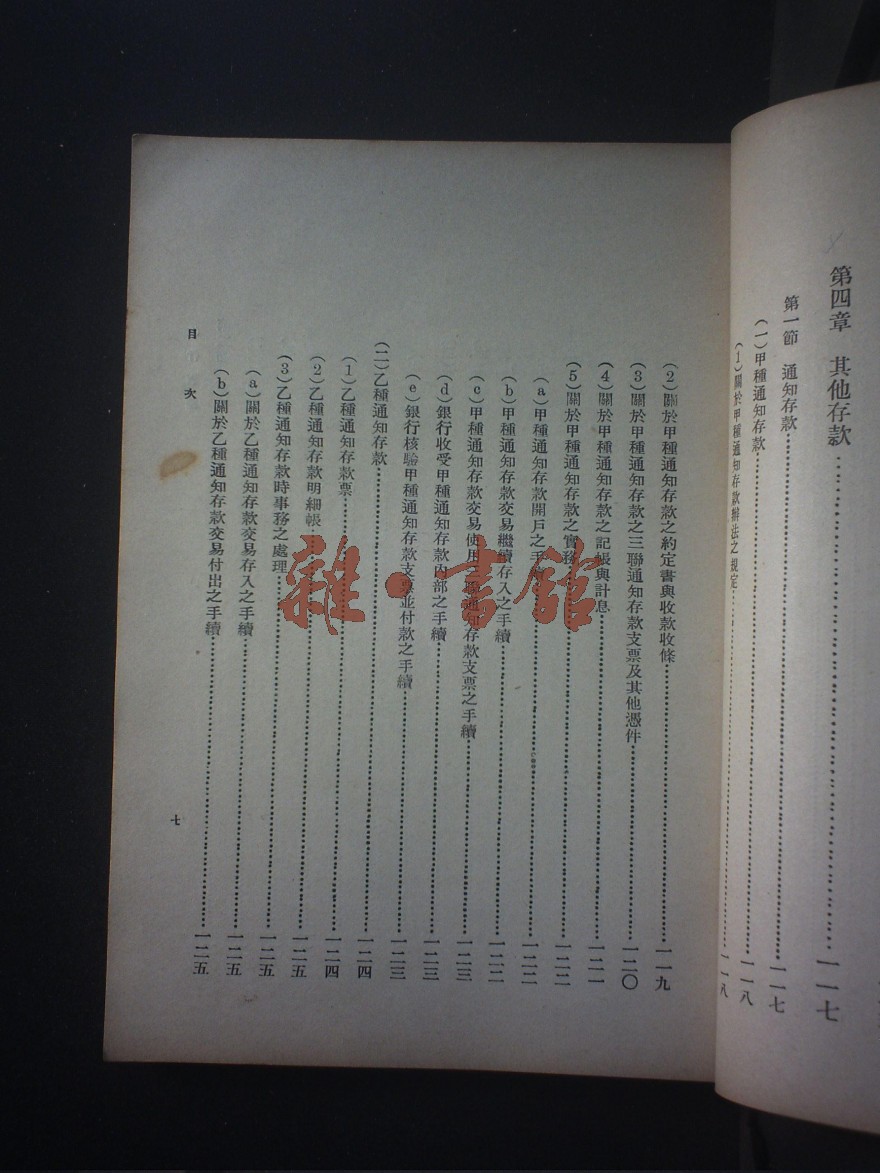 第四章　其他存款……一一七
第一節　通知存款……一一七
(一)甲種通知存款……一一八
(1)關於甲種通知存款辦法之規定……一一八
(2)關於甲種通知存款之約定書與收款收條……一一九
(3)關於甲種通知存款之三聯通知存款支票及其他憑件……一二〇
(4)關於甲種通知存款之記帳與計息……一二一
(5)關於甲種通知存款之實務……一二二
(a)甲種通知存款開戶之手……一二二
(b)甲種通知存款交易繼續存入之手續……一二二
(c)甲種通知存款交易使用聯通知存款支票之手續……一二三
(d)銀行收受甲種通知存款內部之手續……一二三
(e)銀行核驗甲種通知存款支票並付款之手續……一二三
(二)乙種通知存款……一二四
(1)乙種通知存款票……一二四
(2)乙種通知存款明細帳……一二五
(3)乙種通知存款時事務之處理……一二五
(a)關於乙種通知存款交易存入之手續……一二五
(b)關於乙種通知存款交易付出之手續……一二五
目次
七
雜·書館